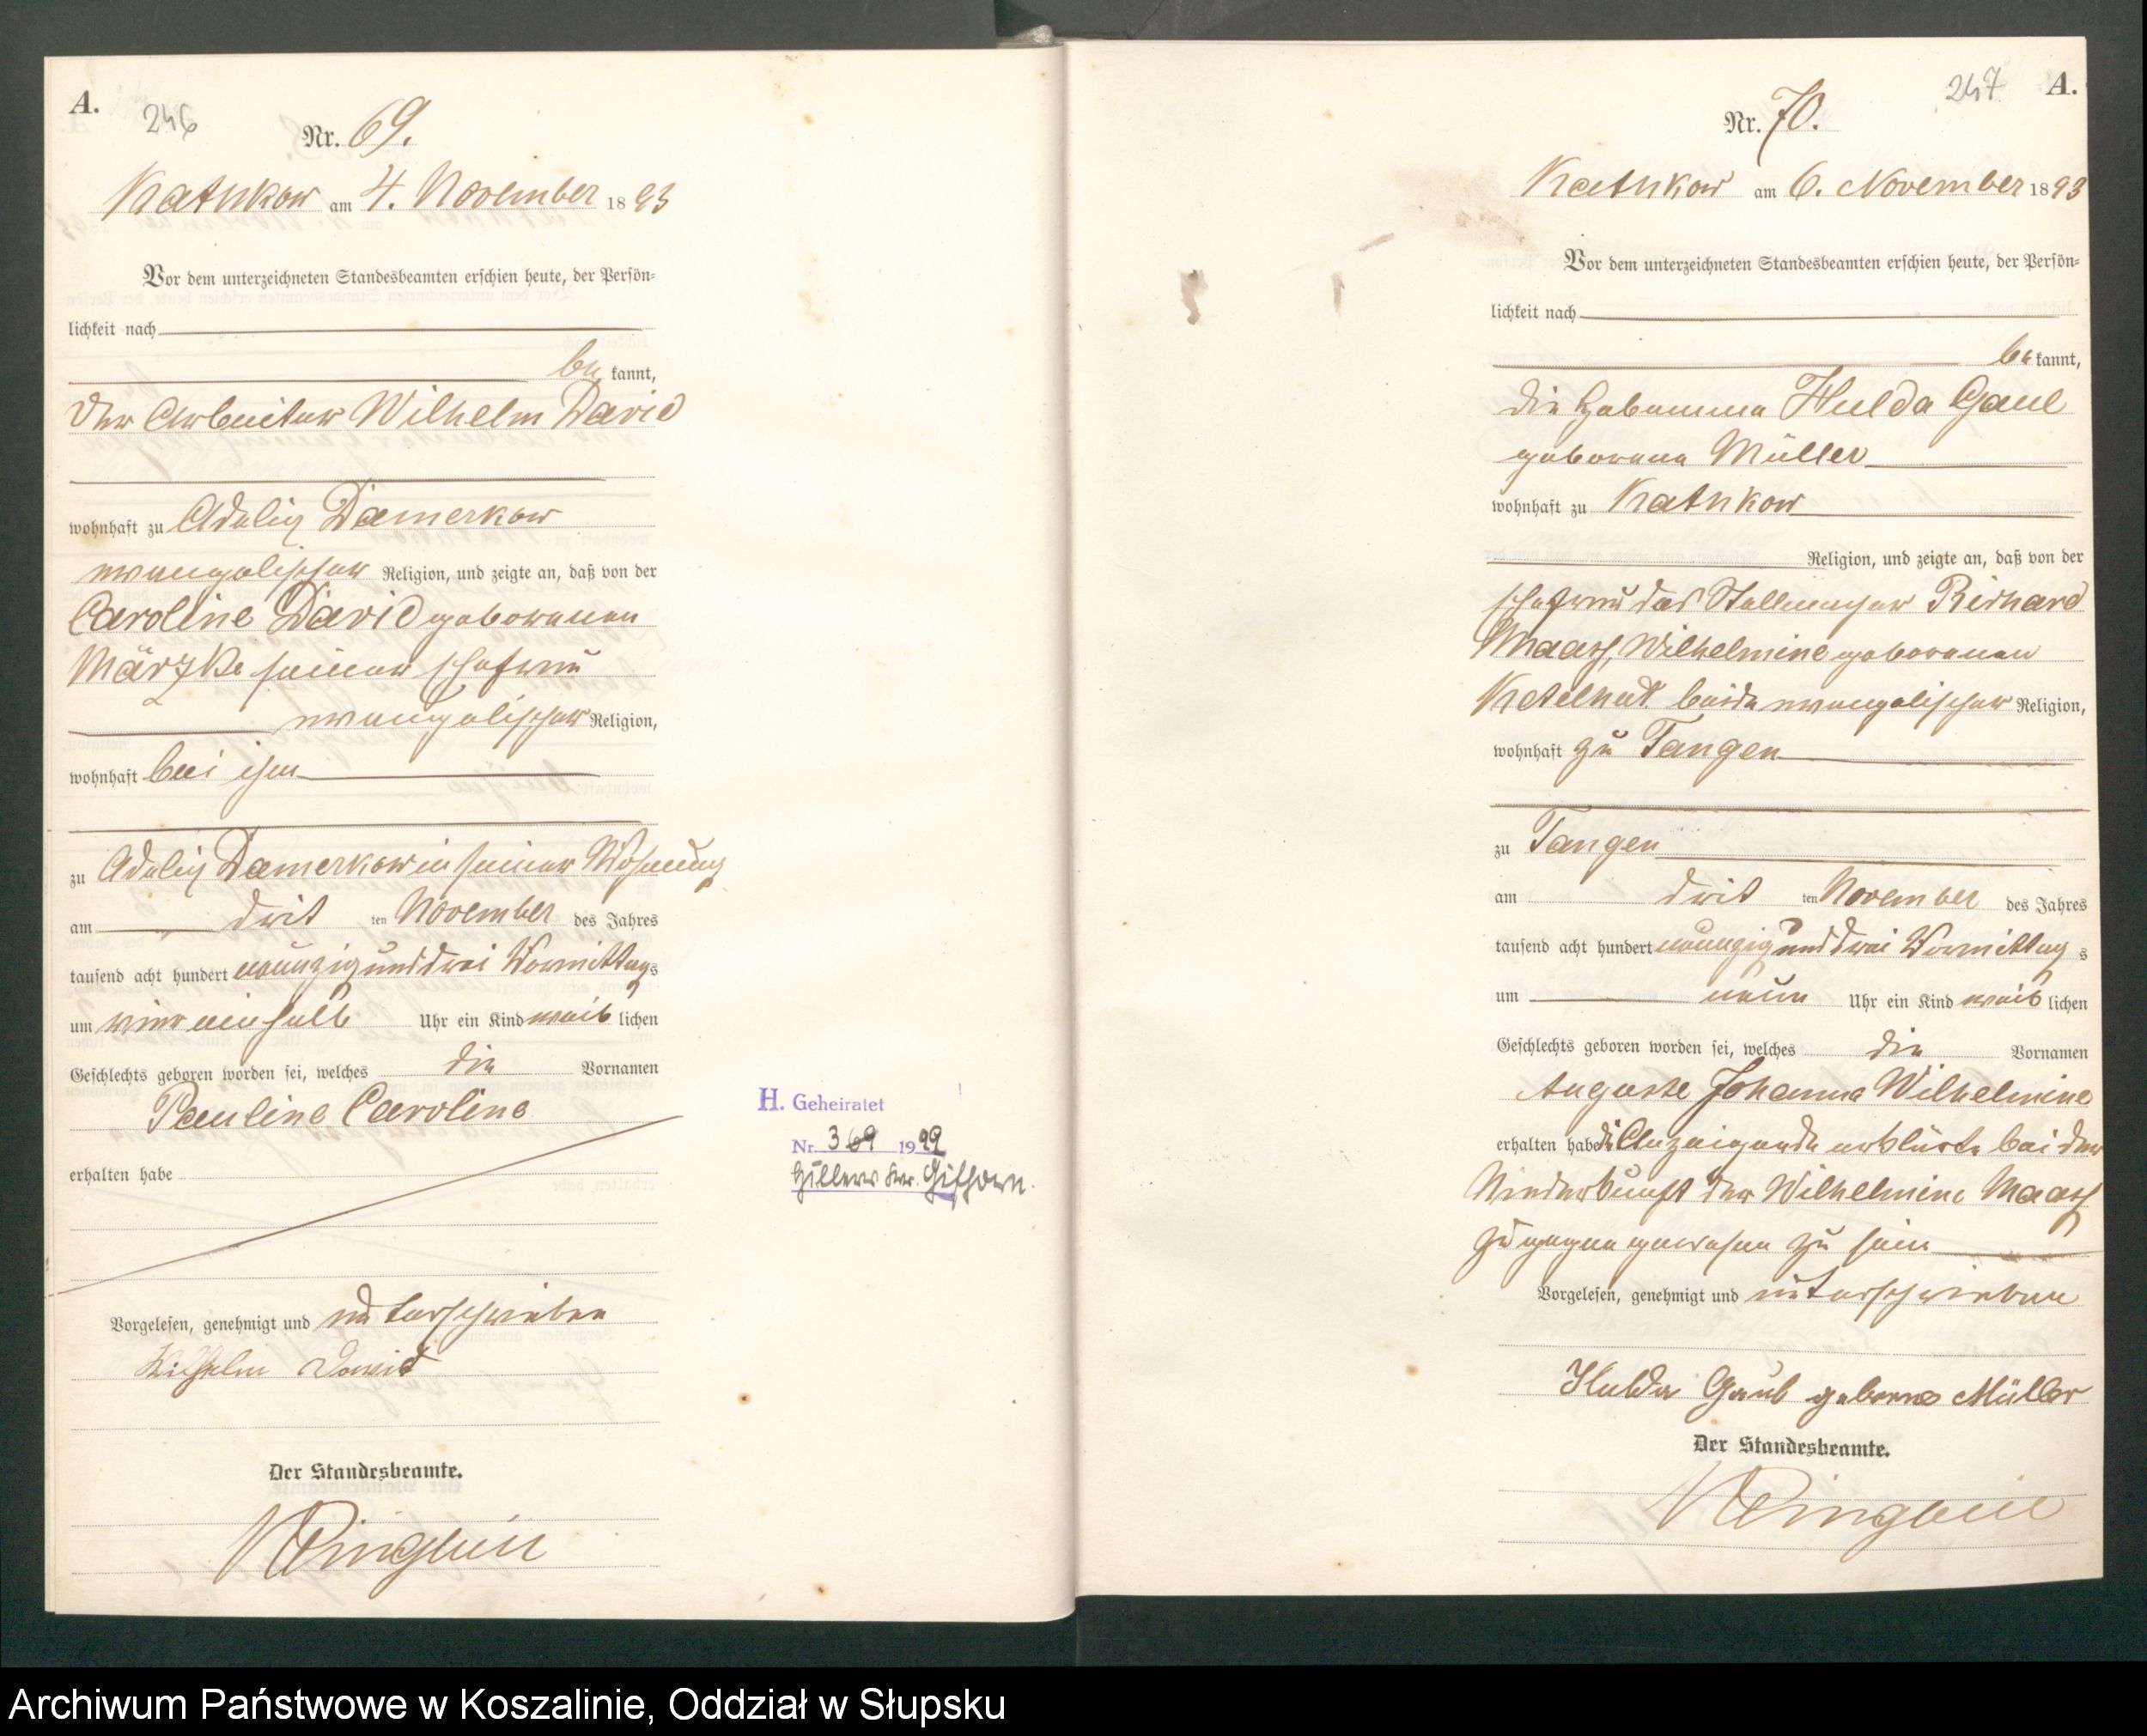 A.
246
Nr. 69.
Kathkow am 4. November 1893
Vor dem unterzeichneten Standesbeamten erschien heute, der Persön-
lichkeit nach
be kannt,
der Arbeiter Wilhelm David
wohnhaft zu Adelig Damerkow
evangelischer Religion, und zeigte an, daß von der
Caroline David geborenen
März​ke seiner Ehefrau
evangelischer Religion,
wohnhaft bei ihm
zu Adelig Damerkow in seiner Wohnung
am dritten November des Jahres
tausend acht hundert neunzig und drei Vormittags
um vier ein halb Uhr ein Kind weiblichen
Geschlechts geboren worden sei, welches die Vornamen
Pauline Caroline
erhalten habe
Vorgelesen, genehmigt und unterschrieben
Wilhelm David
Der Standesbeamte.
H. Geheiratet
Nr. 369 19
Gifhorn.
247
A.
Nr. 70.
Kathkow am 6. November 1893
Vor dem unterzeichneten Standesbeamten erschien heute, der Persön-
lichkeit nach
be kannt,
die Hebamme Hulda Gaul
geborene Müller
wohnhaft zu Kathkow
Religion, und zeigte an, daß von der
Ehefrau des Stellmacher
Maass, Wilhelmine geborenen
Ketelhut beide evangelischer Religion,
wohnhaft zu Tangen
zu Tangen
am dritten November des Jahres
tausend acht hundert neunzig und drei Vormittags
um neun Uhr ein Kind weiblichen
Geschlechts geboren worden sei, welches die Vornamen
Auguste Johanna Wilhelmine
erhalten habe die Anzeigende erklärte bei der
Niederkunft der Wilhelmine Maass
zugegen gewesen zu sein
Vorgelesen, genehmigt und unterschrieben
Hulda Gaul geborne Müller
Der Standesbeamte.
Archiwum Państwowe w Koszalinie, Oddział w Słupsku